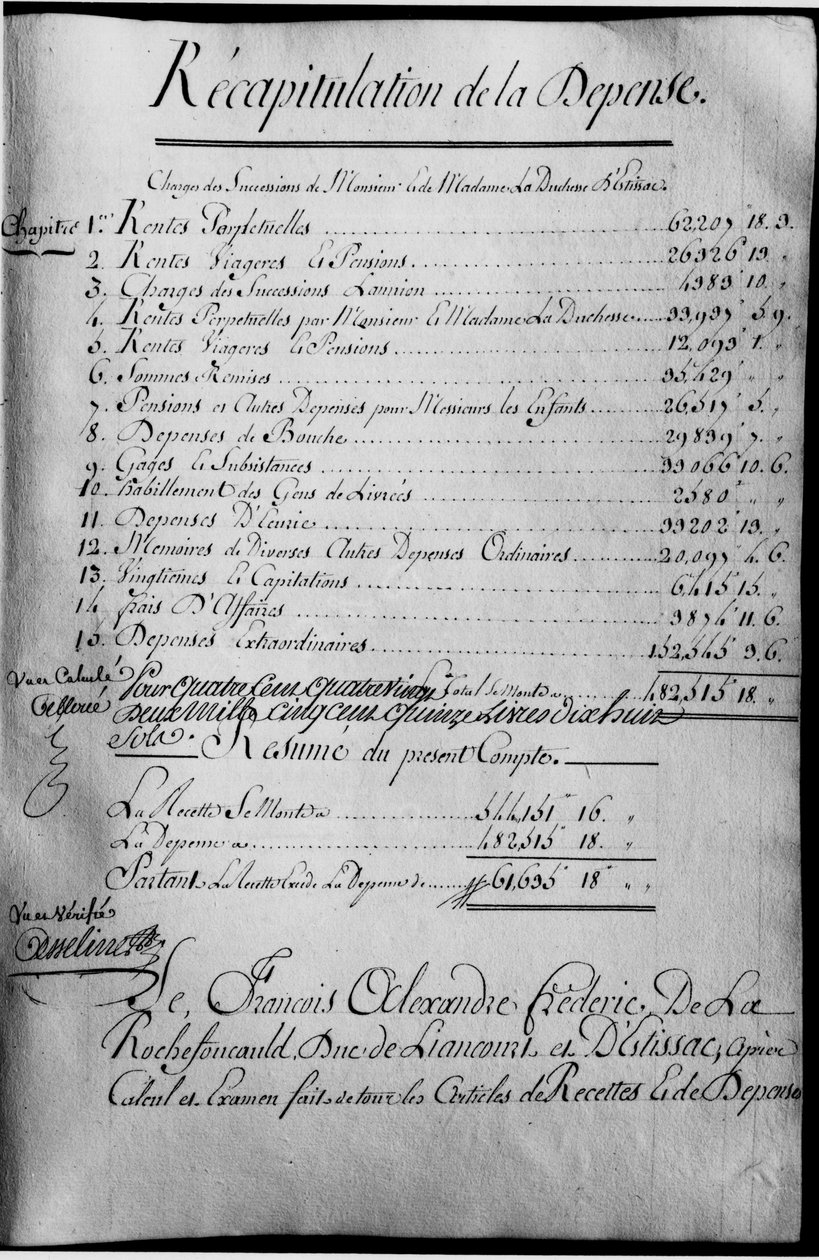 Récapitulation de la Depense.
Charges des Successions de Monsieur & de Madame La Duchesse D'Estissac.
Chapitre 1er Rentes Perpetuelles ........ 62,207" 18. 9.
2. Rentes Viageres & Pensions. ........ 26926" 19. "
3. Charges des Successions Launion ........ 4989" 10. "
4. Rentes Perpetuelles par Monsieur & Madame La Duchesse ........ 99,997" 5. 9.
5. Rentes Viageres & Pensions ........ 12,099" 1. "
6. Sommes Remises ........ 95,429" " "
7. Pensions et Autres Depenses pour Messieurs les Enfants ........ 26,517" 5. "
8. Depenses de Bouche ........ 29899" 7. "
9. Gages & Subsistances ........ 99066" 10. 6.
10. habillement des Gens de Livrées ........ 2580" " "
11. Depenses D'Ecurie ........ 99202" 19. "
12. Memoires de Diverses Autres Depenses Ordinaires ........ 20,097" 4. 6.
13. Vingtiemes & Capitations ........ 6415" 15. "
14 frais D'Affaires ........ 9874" 11. 6.
15. Depenses Extraordinaires ........ 152,545" 9. 6.
Vu et Calculé Pour quatre Cent quatre vingt Total Se Monte a ........ 482,515" 18. "
Deux Mille cinq cent quinze Livres dix huit
Sols. Resumé du present Compte.
La Recette Se Monte a ........ 544,151" 16. "
La Depense a ........ 482,515" 18. "
Partant La Recette Excede La Depense de ........ 61,695" 18" " "
Vu et Vérifié
Asseline
Je, François Alexandre Fréderic De La
Rochefoucauld, Duc de Liancourt et D'Estissac, après
Calcul et Examen fait de tous les Articles de Recettes & de Depenses